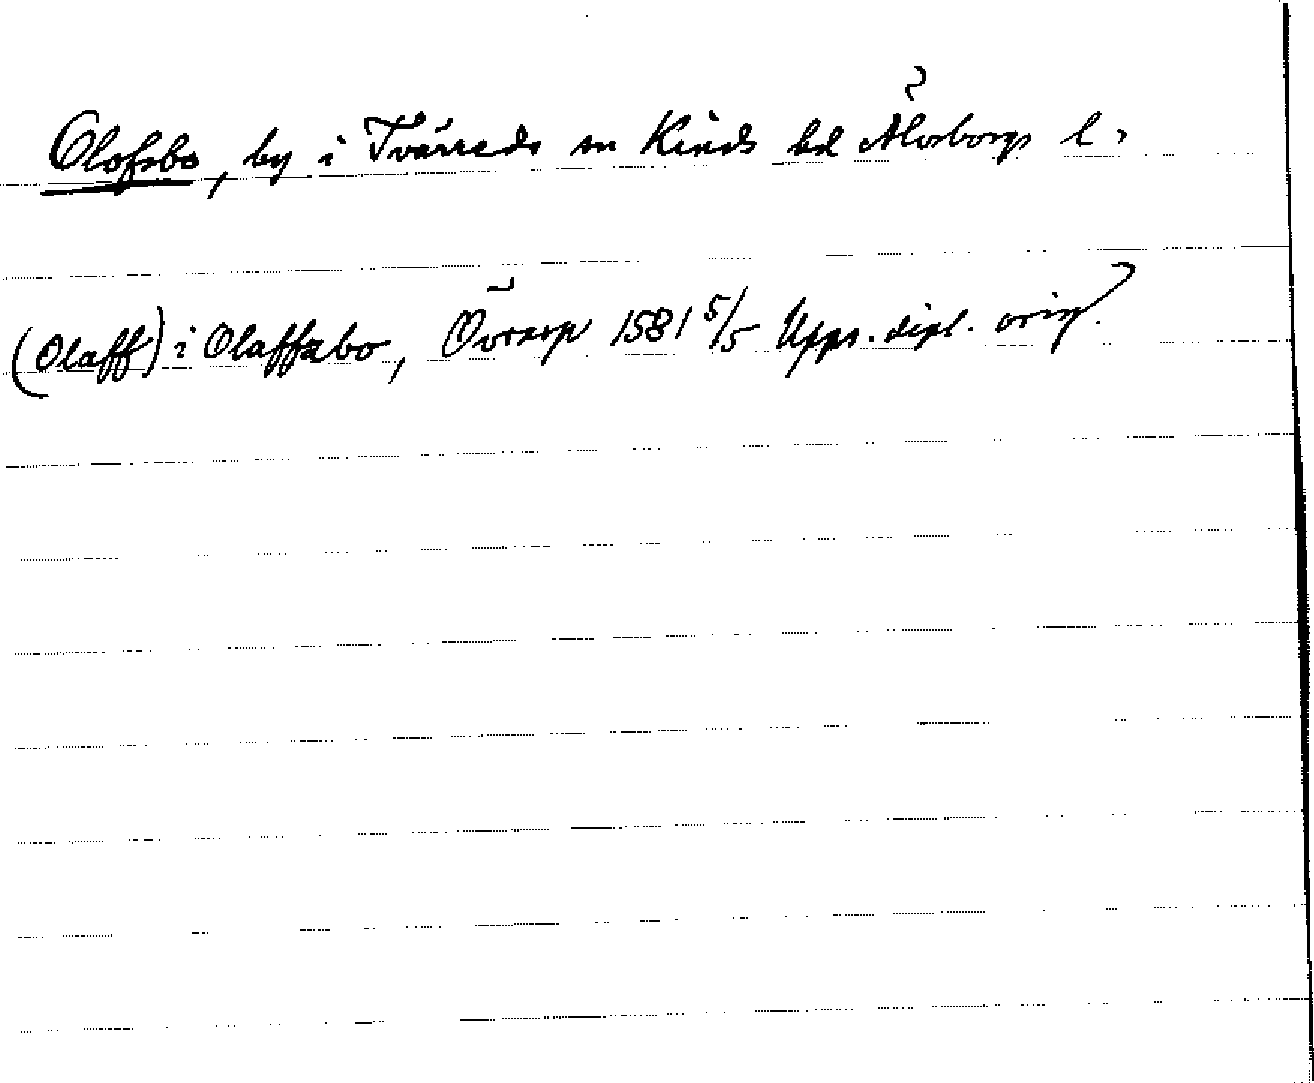 Olofsbo, by i Tvärreds sn Kinds hd Älvsborgs l.
(Olaff) i Olaffzbo, Övrarp 1581 5/5 Upps. dipl. orig.